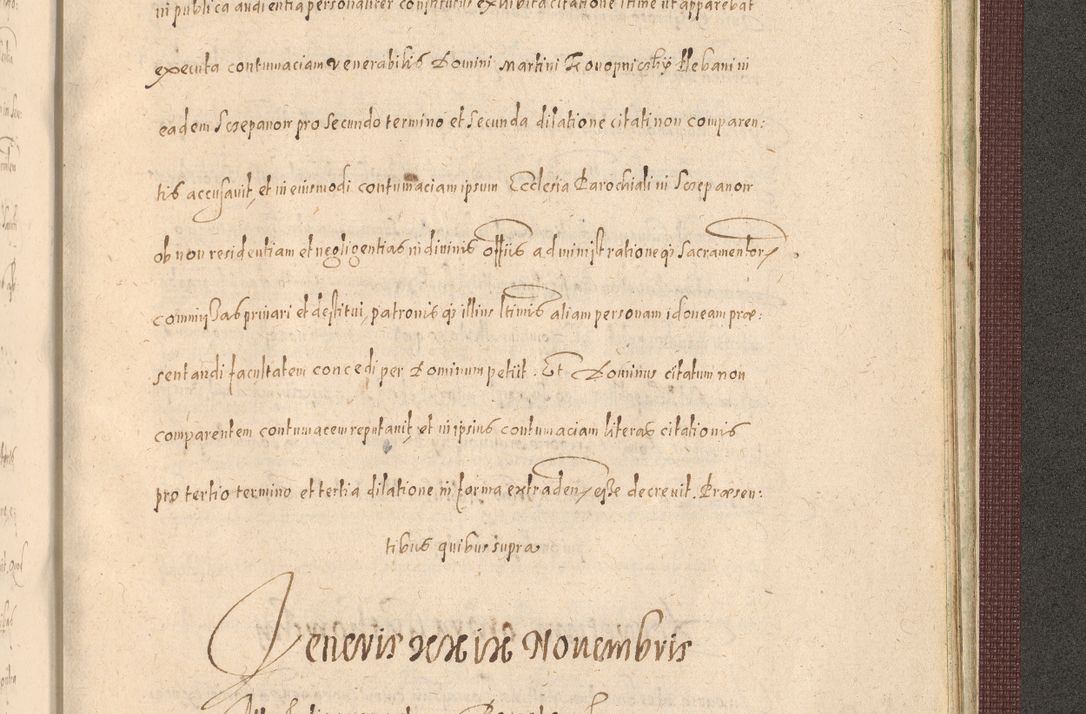 in publica audientia personaliter constitutus exhibita citatione ltime ut apparebat
executa contumaciam Venerabilis Domini Martini Konopniczky Plebani in
eadem Sczepanow pro Secundo termino et Secunda dilatione citati non comparen:
tis accusavit, et in eiusmodi contumaciam ipsum Ecclesia Parochiali in Sczepanow
ob non residentiam et negligentias in divinis offiis administrationeq3 Sacramentor
commissas privari et destitui, patronis q3 illius ltimis aliam personam idoneam præ:
sentandi facultatem concedi per Dominum petiit. Et Dominus citatum non
comparentem contumacem reputavit, et in ipsius contumaciam literas citationis
pro tertio termino et tertia dilatione in forma extraden esse decrevit. Præsen:
tibus quibus supra
Veneris xxix Novembris